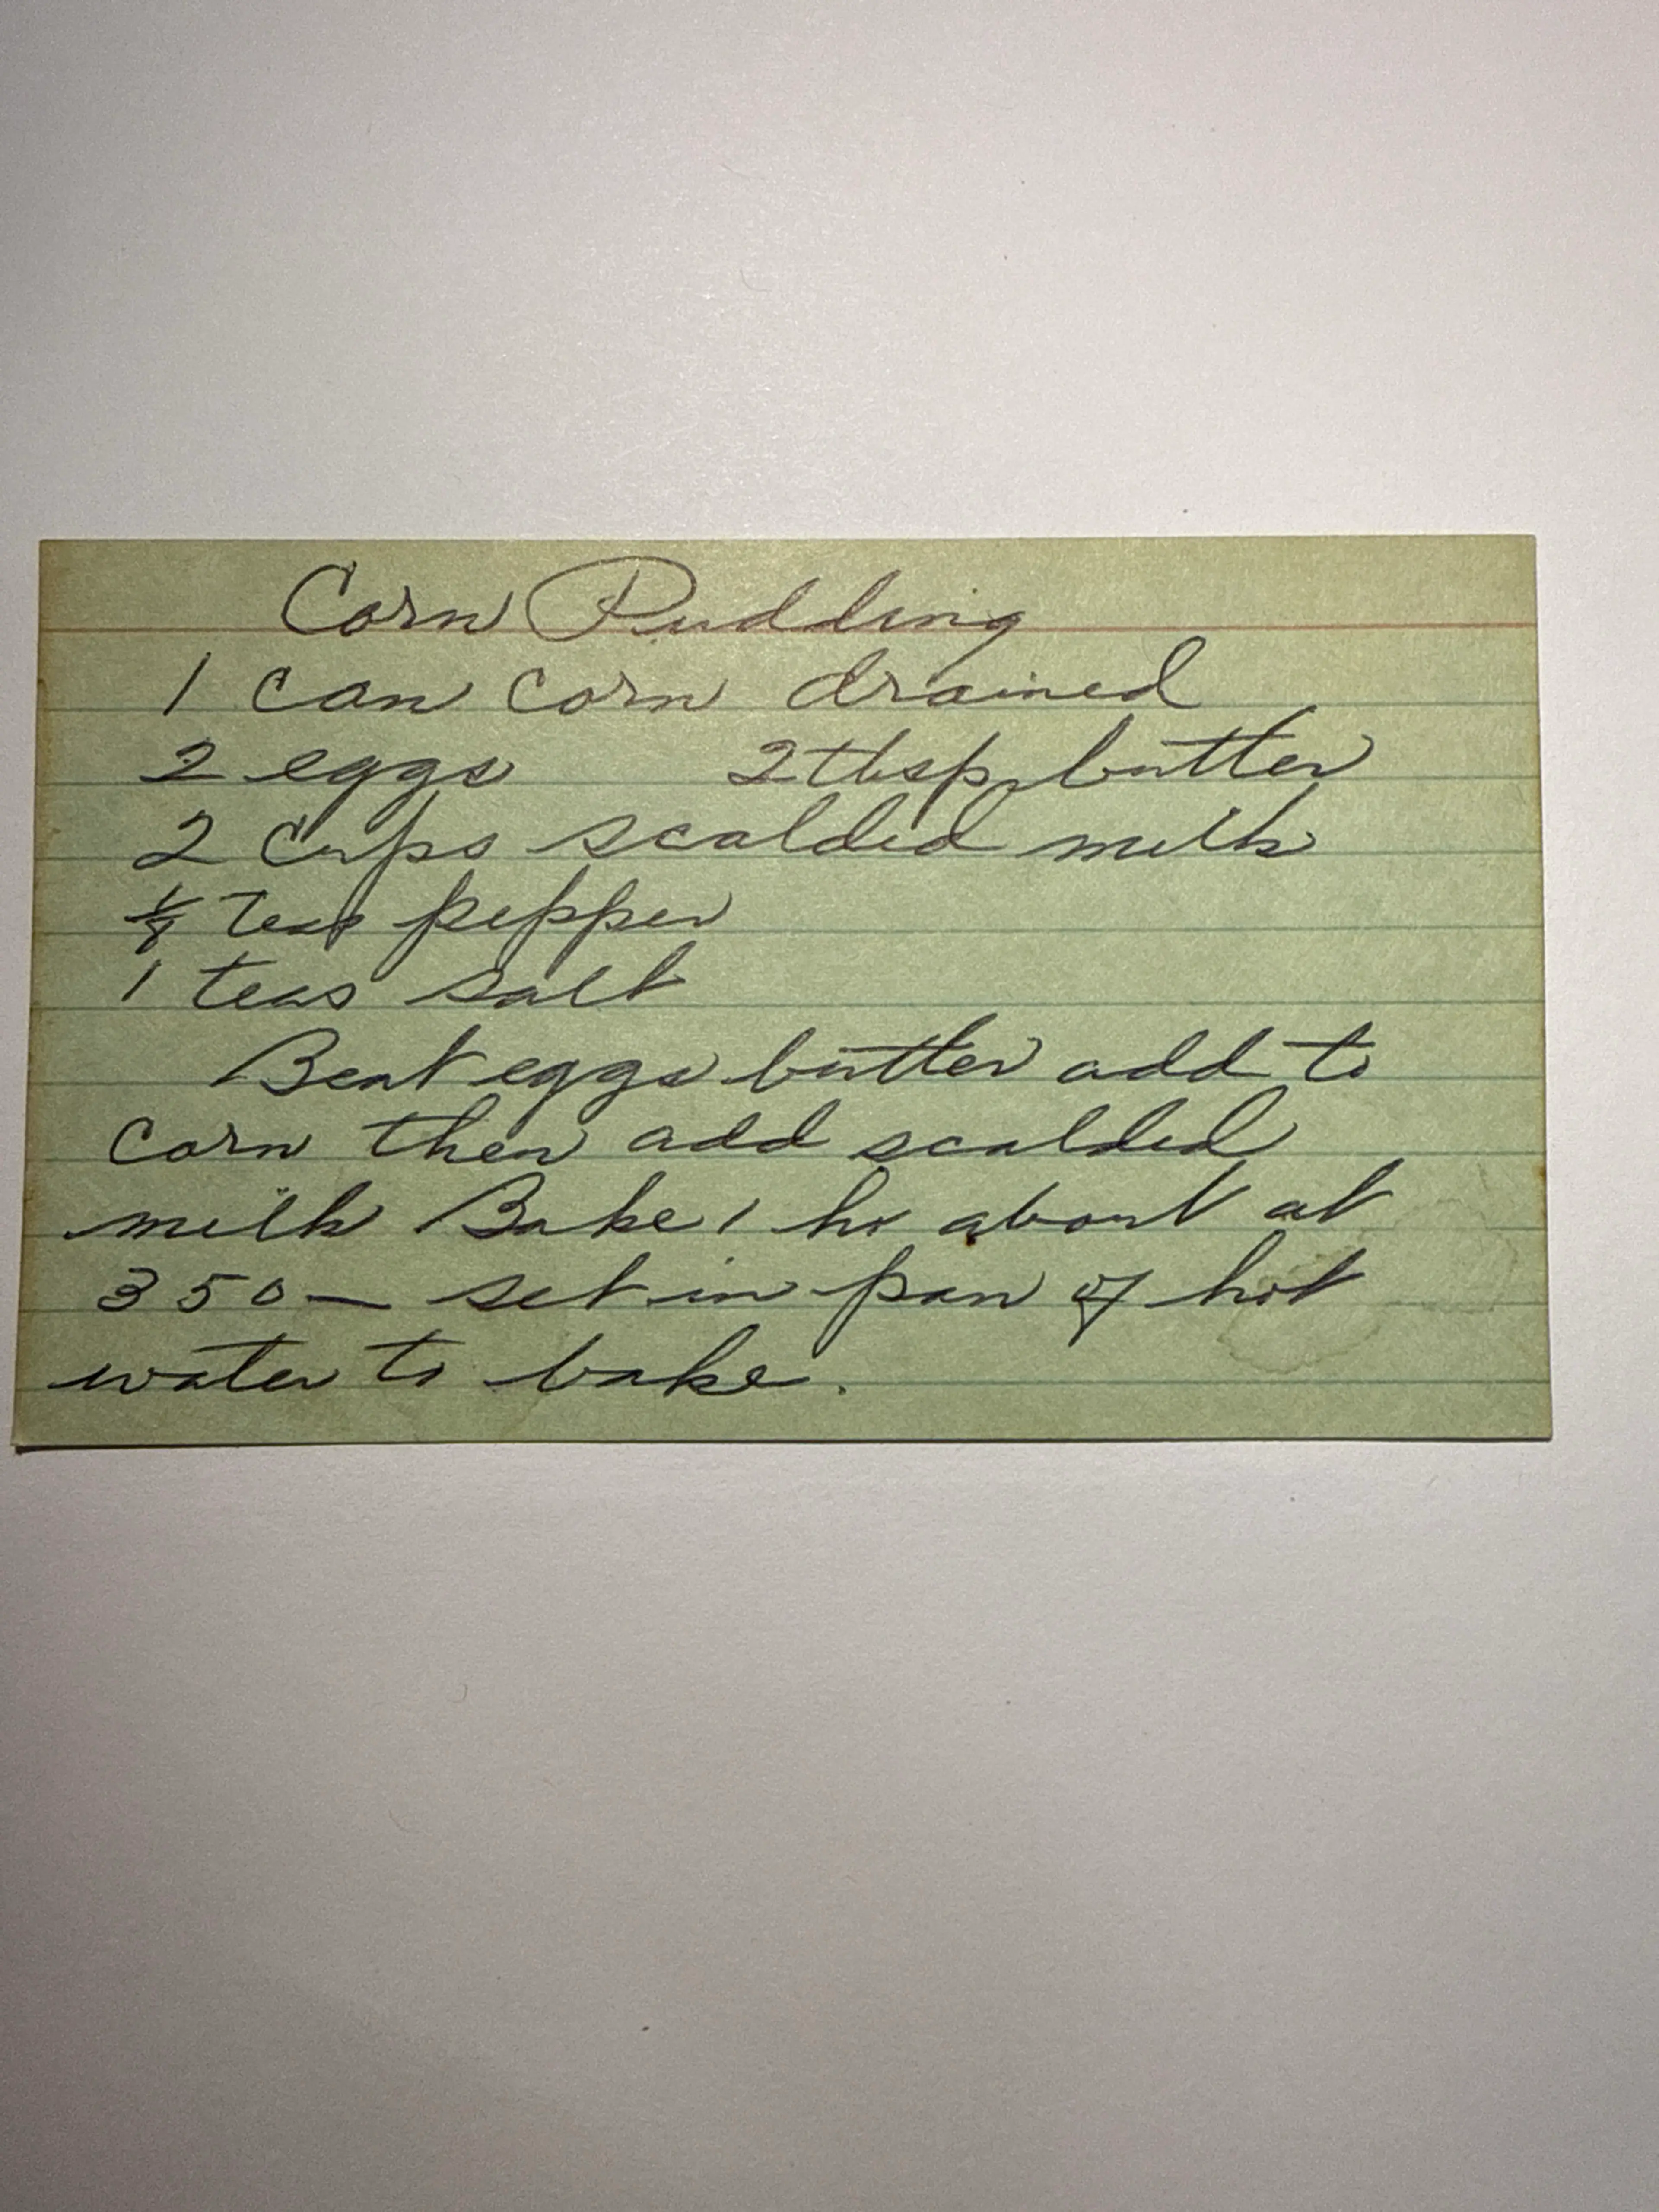 Corn Pudding
1 can corn drained
2 eggs 2 tbsp butter
2 cups scalded milk
1/8 teas pepper
1 teas salt
Beat eggs butter add to
corn then add scalded
milk Bake 1 hr about at
350 — set in pan of hot
water to bake.